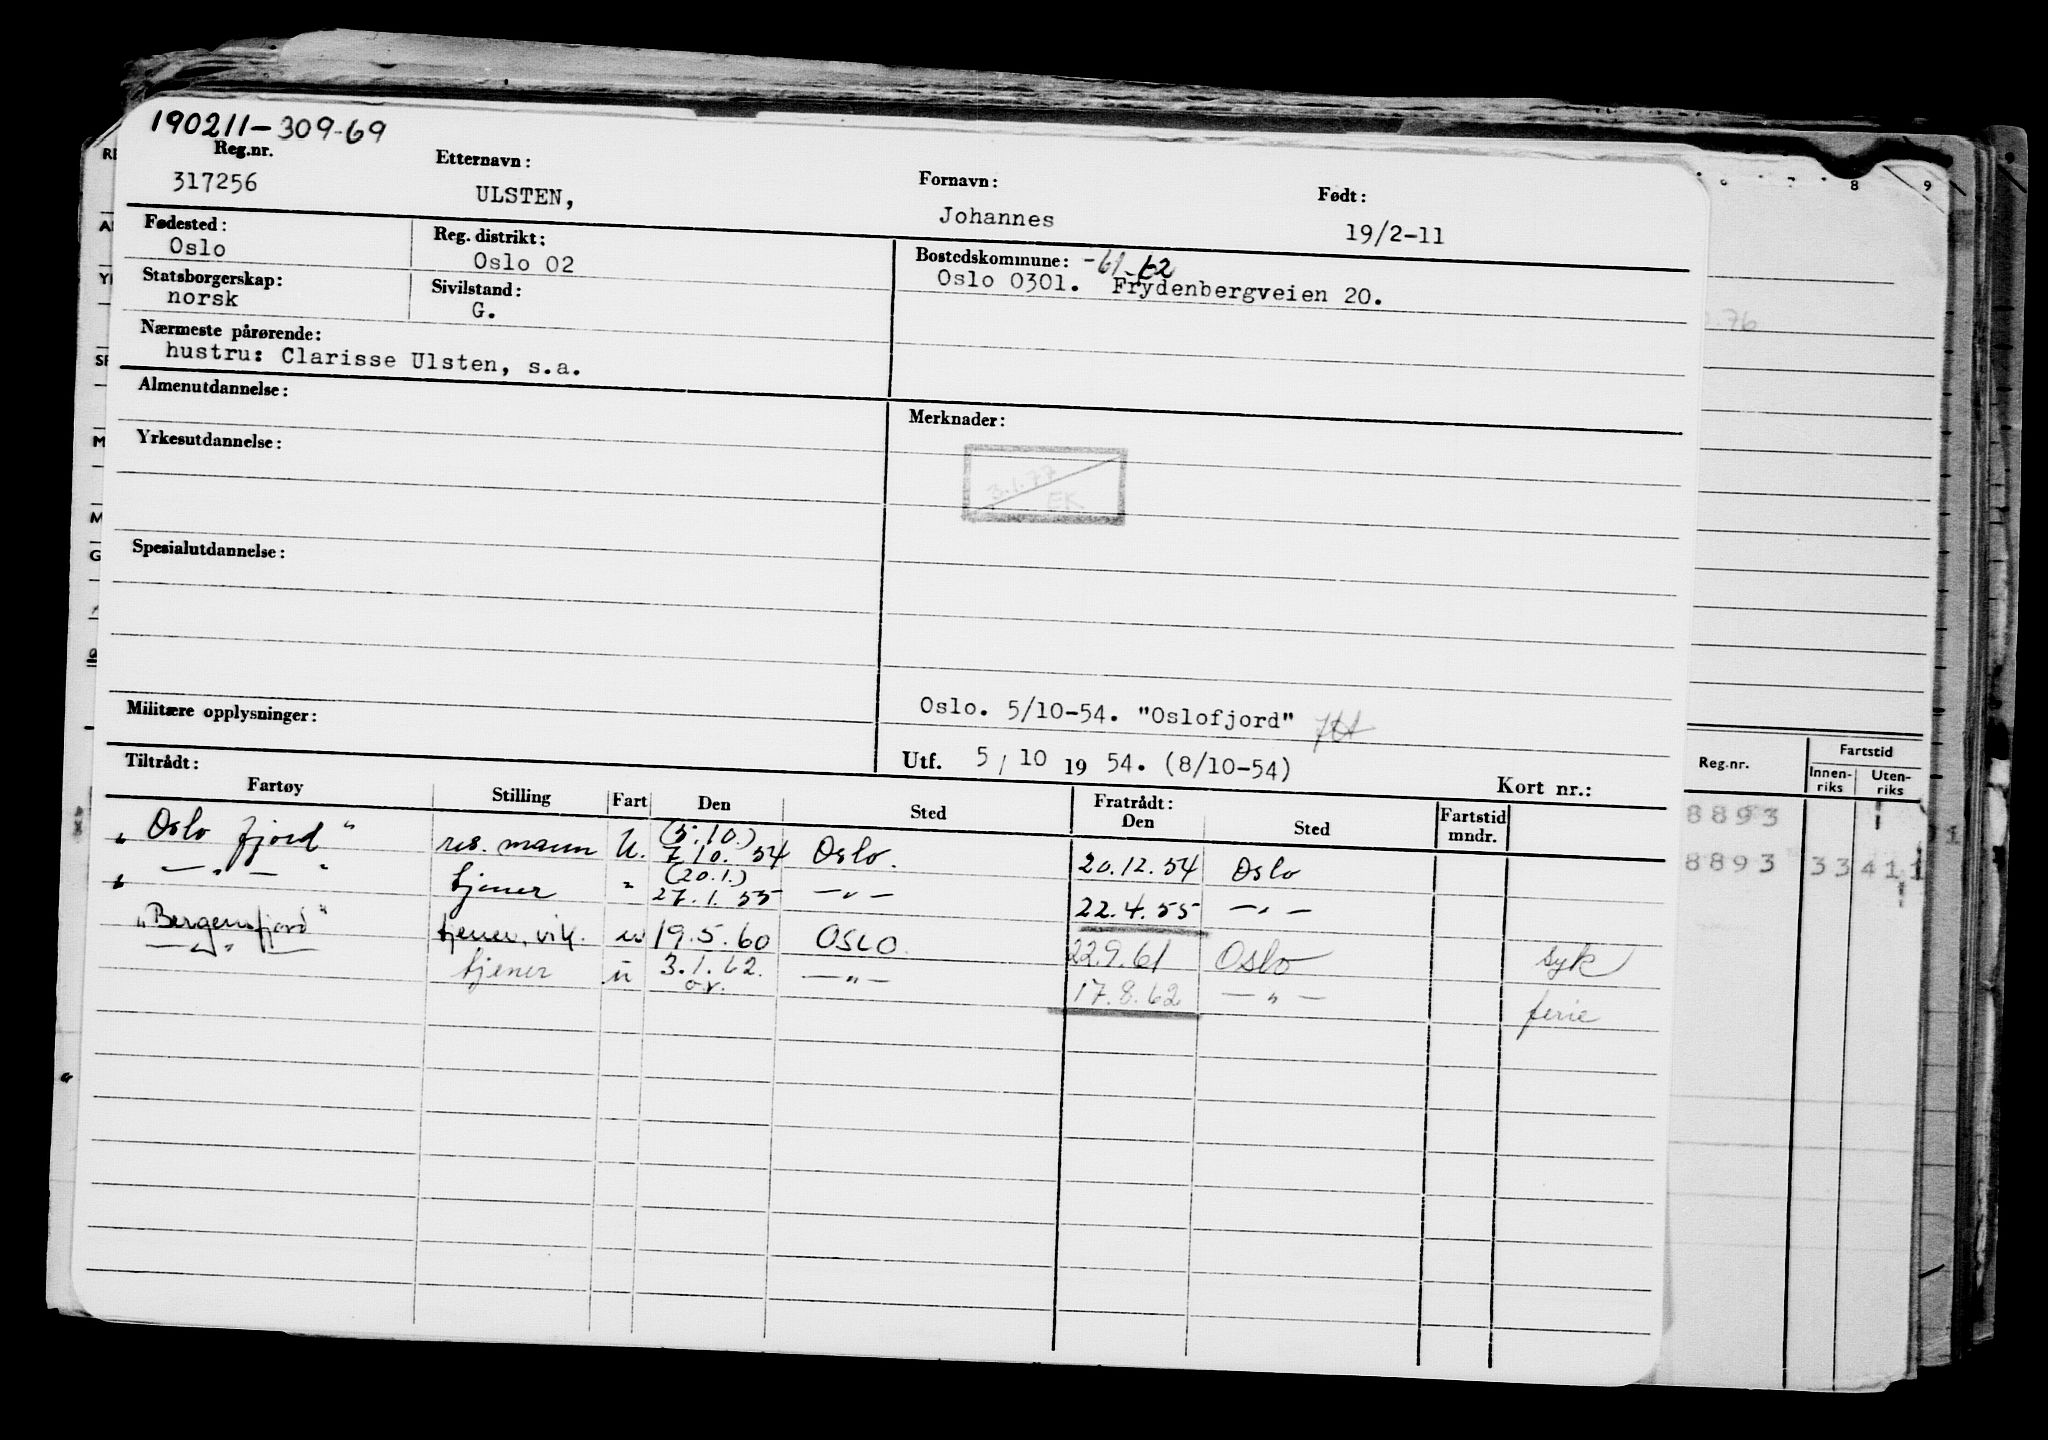 190211-309-69
Reg.nr. Etternavn: Fornavn: Født:
317256 ULSTEN, Johannes 19/2-11
Fødested: Reg. distrikt: Bostedskommune: -61-62
Oslo Oslo 02 Oslo 0301. Frydenbergveien 20.
Statsborgerskap: Sivilstand:
norsk G.
Nærmeste pårørende:
hustru: Clarisse Ulsten, s.a.
Almenutdannelse: Merknader:
Yrkesutdannelse:
3.1.77
EK
Spesialutdannelse:
Militære opplysninger: Oslo. 5/10-54. "Oslofjord"
Utf. 5/10 19 54. (8/10-54)
Tiltrådt: Kort nr.:
Fartøy Stilling Fart Den Sted Fratrådt: Den Sted Fartstid mndr.
"Oslofjord" res. mann U. (5.10.) 7.10.54 Oslo. 20.12.54 Oslo
" — " — " tjener " (20.1.) 27.1.55 — " — 22.4.55 — " —
"Bergensfjord" tjener, vik. u 19.5.60 OSLO. 22.9.61 Oslo syk
— " — tjener u 3.1.62. — " — 17.8.62 — " — ferie
o.r.
8 9
Reg.nr. Fartstid
Innen-riks Uten-riks
8893
8893 33 411